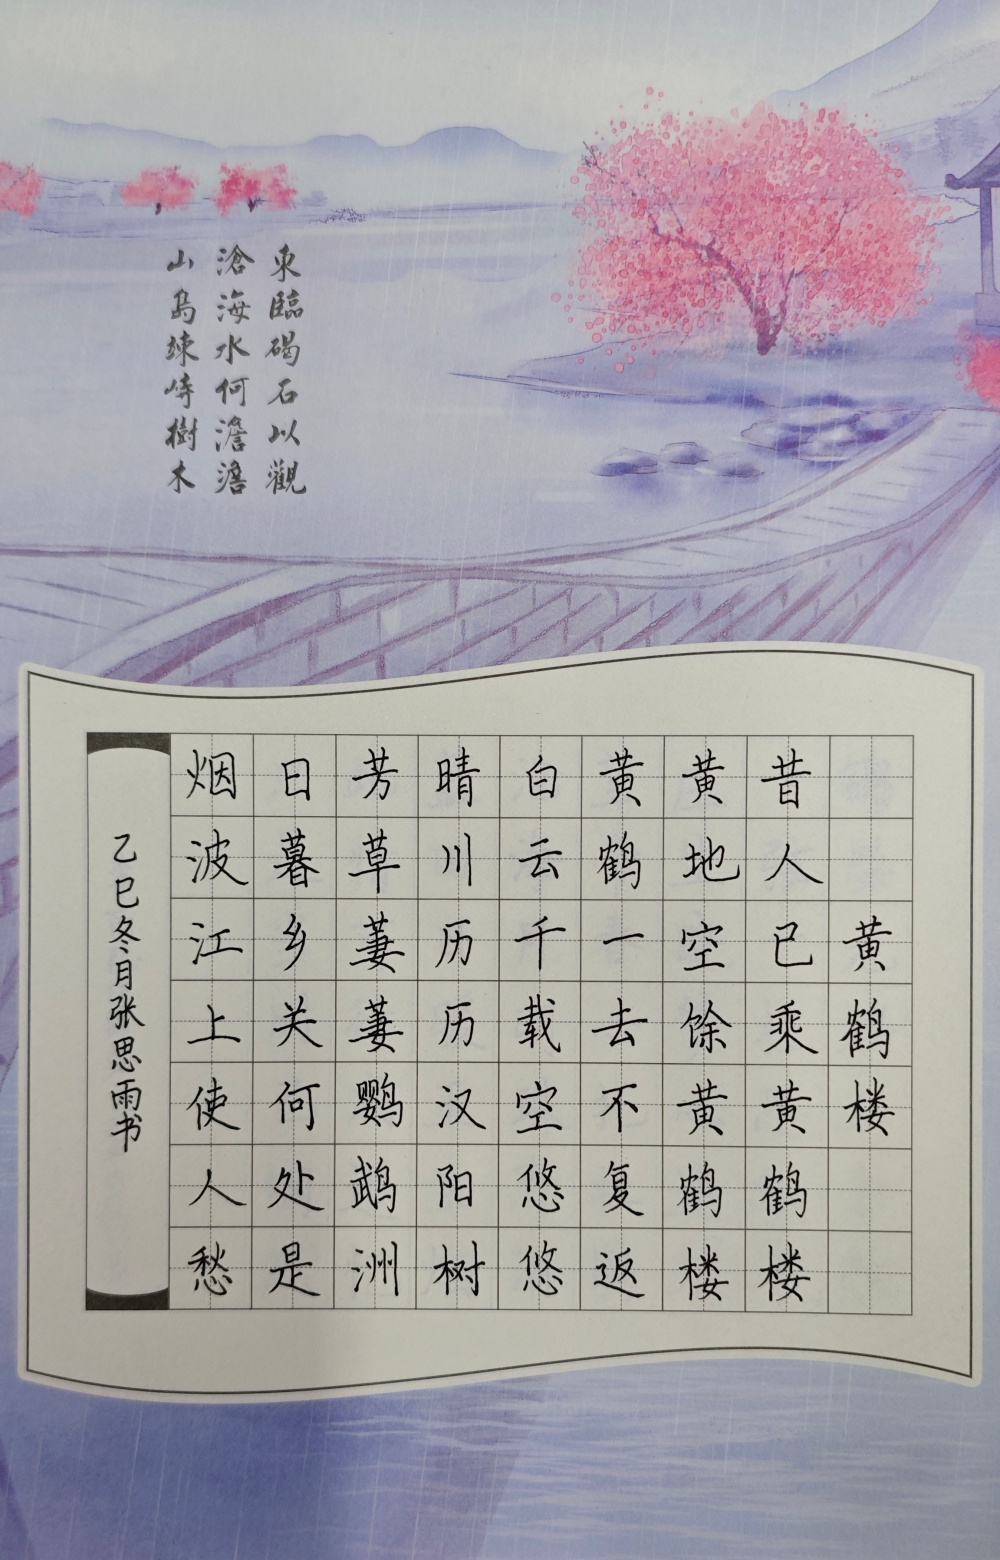 東臨碣石以觀
滄海水何澹澹
山島竦峙樹木
黄鹤楼
昔人已乘黄鹤楼
黄地空馀黄鹤楼
黄鹤一去不复返
白云千载空悠悠
晴川历历汉阳树
芳草萋萋鹦鹉洲
日暮乡关何处是
烟波江上使人愁
乙巳冬月张思雨书